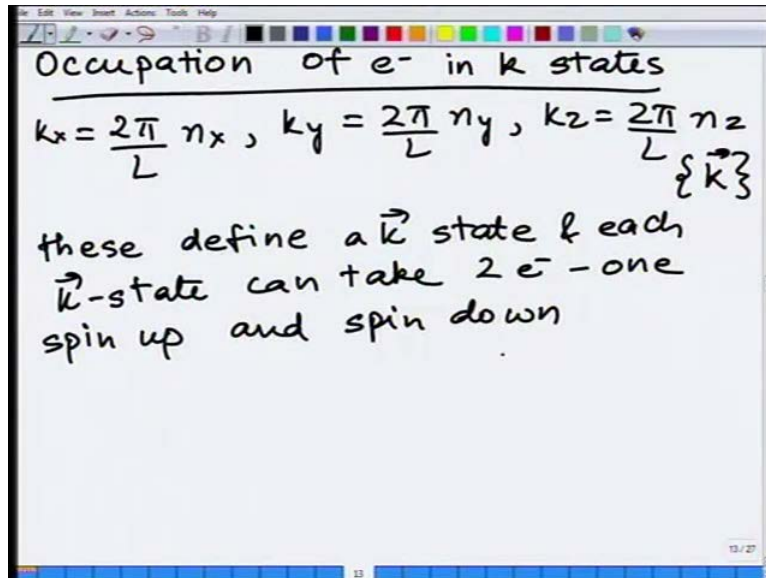 File Edit View Insert Actions Tools Help
Occupation of e- in k states
kx = 2π/L nx, ky = 2π/L ny, kz = 2π/L nz
{k⃗}
these define a k⃗ state & each
k⃗-state can take 2 e- - one
spin up and spin down
13/27
13